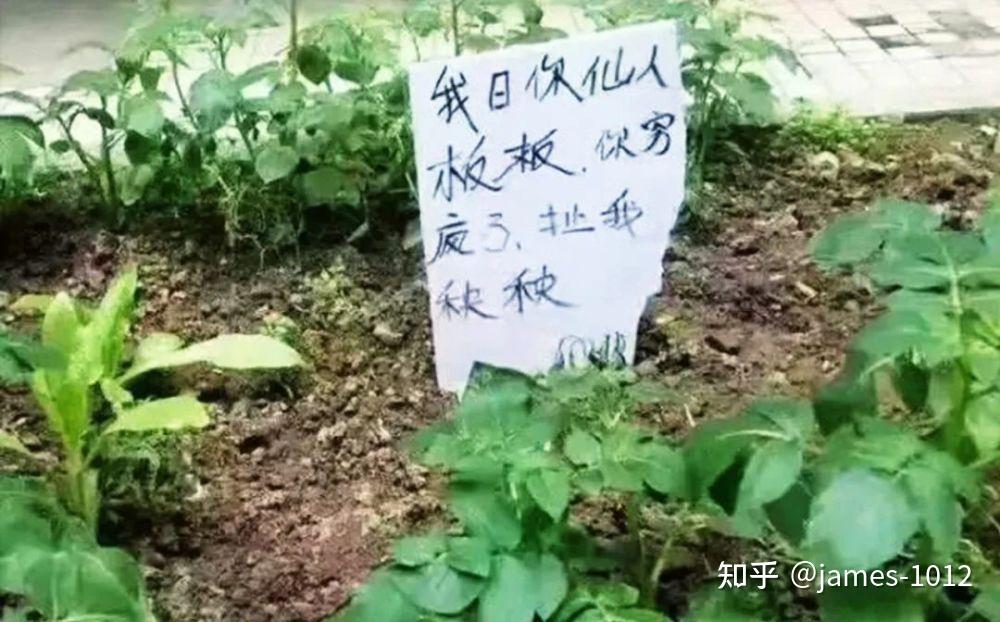 我日你仙人
板板.你穷
疯了、扯我
秧秧
知乎 @james-1012